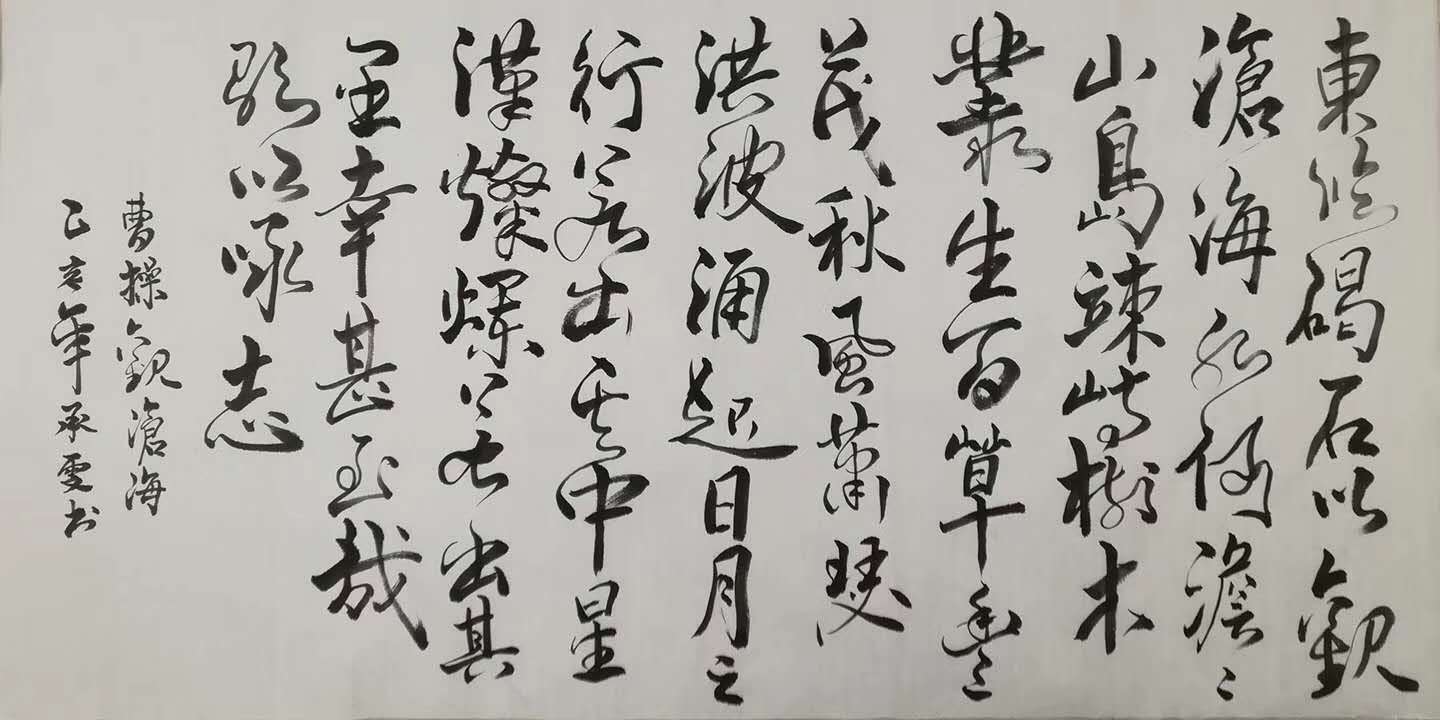 東臨碣石以觀
滄海水何澹〻
山島竦峙樹木
叢生百草豐
茂秋風蕭瑟
洪波涌起日月之
行若出其中星
漢燦爛若出其
里幸甚至哉
歌以咏志
曹操觀滄海
己亥年承雯书